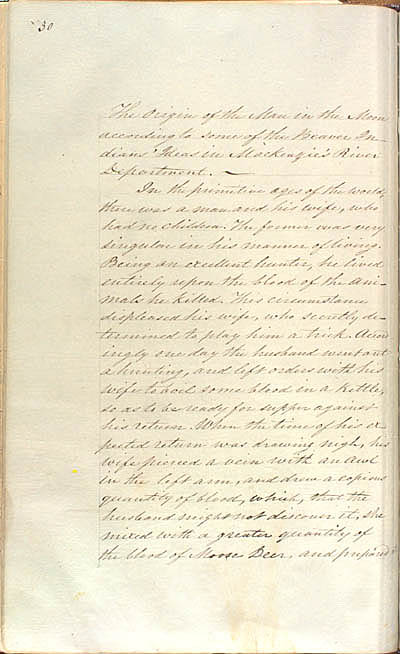 30
The Origin of the Man in the Moon
according to some of the Beaver In-
dians' Ideas in Mackenzie's River
Department. —
In the primitive ages of the world,
there was a man and his wife, who
had no children. The former was very
singular in his manner of living.
Being an excellent hunter, he lived
entirely upon the blood of the ani-
mals he killed. This circumstance
displeased his wife, who secretly de-
termined to play him a trick. Accor
ingly one day the husband went out
a hunting, and left orders with his
wife to boil some blood in a Kettle,
so as to be ready for supper against
his return. When the time of his ex
pected return was drawing nigh, his
wife pierced a vein with an awl
in the left arm, and drew a copious
quantity of blood, which, that the
husband might not discover it, she
mixed with a greater quantity of
the blood of Moose Deer, and prepared